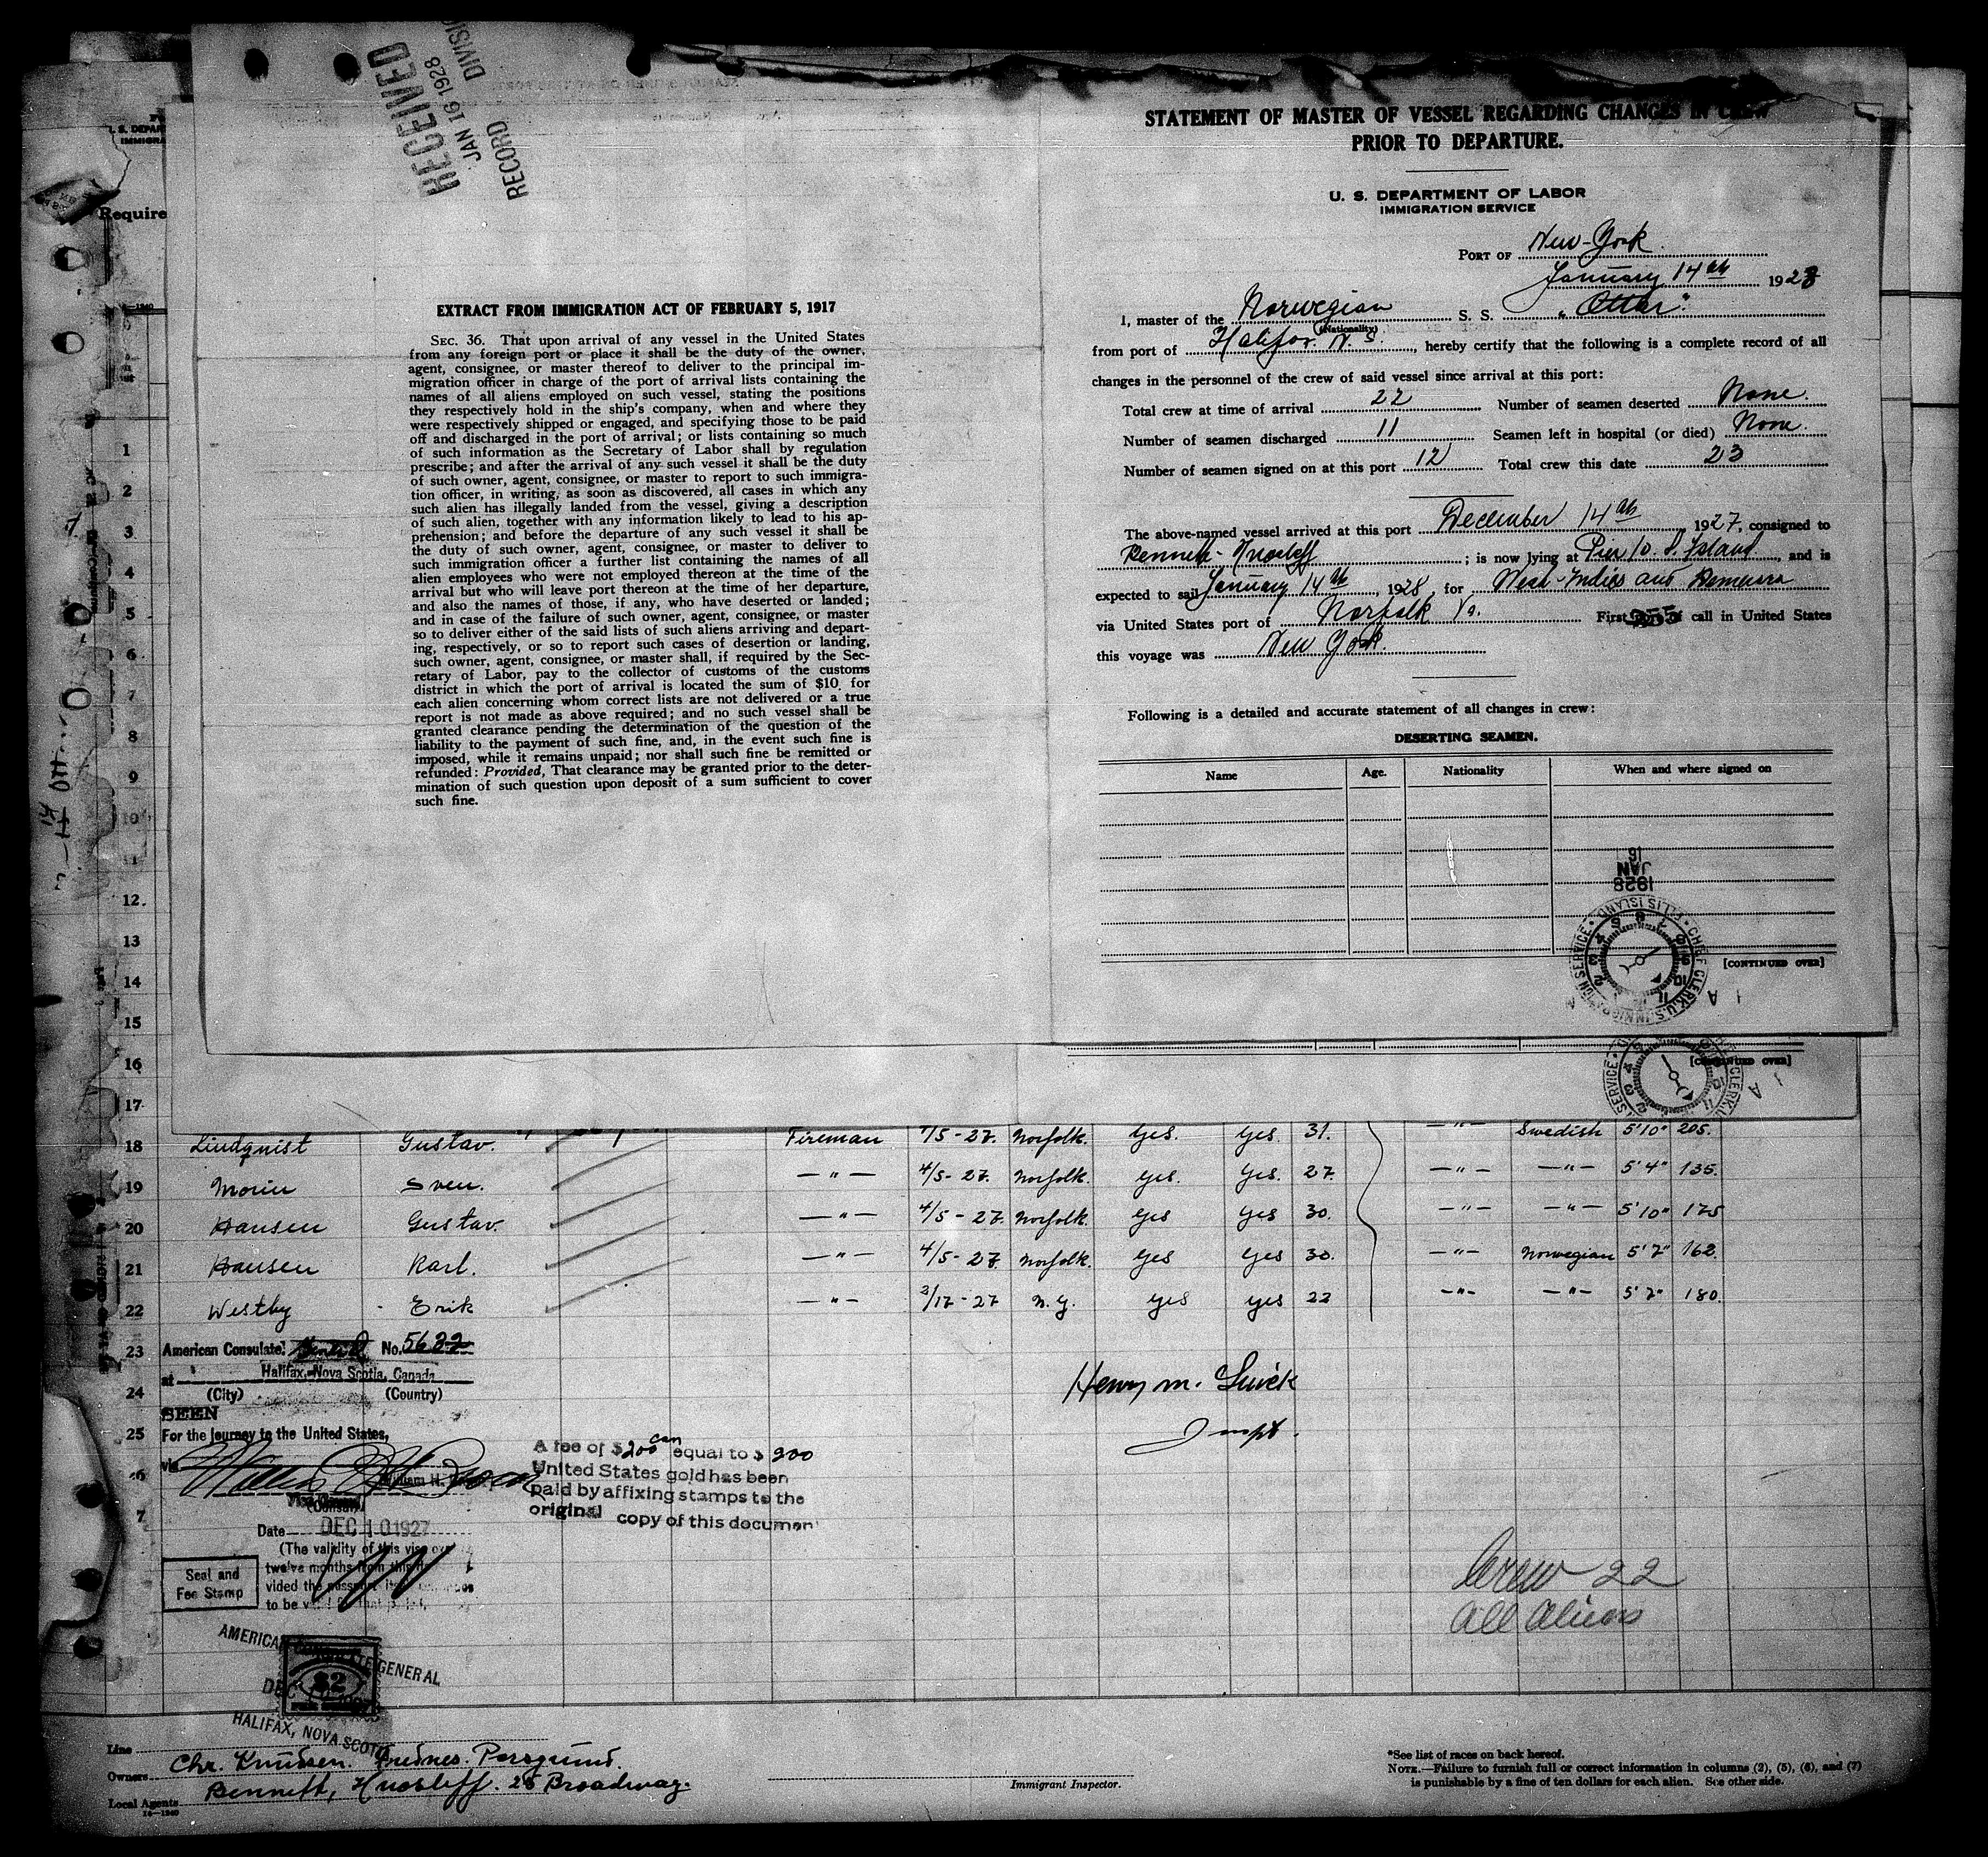 RECEIVED
JAN 16 1928
RECORD DIVISIO
EXTRACT FROM IMMIGRATION ACT OF FEBRUARY 5, 1917
SEC. 36. That upon arrival of any vessel in the United States
from any foreign port or place it shall be the duty of the owner,
agent, consignee, or master thereof to deliver to the principal im-
migration officer in charge of the port of arrival lists containing the
names of all aliens employed on such vessel, stating the positions
they respectively hold in the ship's company, when and where they
were respectively shipped or engaged, and specifying those to be paid
off and discharged in the port of arrival; or lists containing so much
of such information as the Secretary of Labor shall by regulation
prescribe; and after the arrival of any such vessel it shall be the duty
of such owner, agent, consignee, or master to report to such immigra-
tion officer, in writing, as soon as discovered, all cases in which any
such alien has illegally landed from the vessel, giving a description
of such alien, together with any information likely to lead to his ap-
prehension; and before the departure of any such vessel it shall be
the duty of such owner, agent, consignee, or master to deliver to
such immigration officer a further list containing the names of all
alien employees who were not employed thereon at the time of the
arrival but who will leave port thereon at the time of her departure,
and also the names of those, if any, who have deserted or landed;
and in case of the failure of such owner, agent, consignee, or master
so to deliver either of the said lists of such aliens arriving and depart-
ing, respectively, or so to report such cases of desertion or landing,
such owner, agent, consignee, or master shall, if required by the Sec-
retary of Labor, pay to the collector of customs of the customs
district in which the port of arrival is located the sum of $10 for
each alien concerning whom correct lists are not delivered or a true
report is not made as above required; and no such vessel shall be
granted clearance pending the determination of the question of the
liability to the payment of such fine, and, in the event such fine is
imposed, while it remains unpaid; nor shall such fine be remitted or
refunded: Provided, That clearance may be granted prior to the deter-
mination of such question upon deposit of a sum sufficient to cover
such fine.
STATEMENT OF MASTER OF VESSEL REGARDING CHANGES IN CREW
PRIOR TO DEPARTURE.
U. S. DEPARTMENT OF LABOR
IMMIGRATION SERVICE
PORT OF New-York
January 14th 1928
I, master of the Norwegian S. S. "Ottar"
(Nationality)
from port of Halifax N. S., hereby certify that the following is a complete record of all
changes in the personnel of the crew of said vessel since arrival at this port:
Total crew at time of arrival 22 Number of seamen deserted None.
Number of seamen discharged 11 Seamen left in hospital (or died) None.
Number of seamen signed on at this port 12 Total crew this date 23
The above-named vessel arrived at this port December 14th 1927, consigned to
; is now lying at Pier 10. S. Island, and is
expected to sail January 14th, 1928, for West-Indies and Demerara
via United States port of Norfolk Va. First port of call in United States
355
this voyage was New York.
Following is a detailed and accurate statement of all changes in crew:
DESERTING SEAMEN.
Name Age. Nationality When and where signed on
1928
JAN
16
CHIEF CLERK, U.S. IMMIGRATION SERVICE • ELLIS ISLAND •
[CONTINUED OVER]
[CONTINUED OVER]
Require
1
2
3
4
5
6
7
8
9
10
11
12
13
14
15
16
17
18 Lindqvist Gustav. Fireman 4/5-27. Norfolk. Yes. Yes. 31. —"— Swedish 5'10" 205.
19 Morin Sven. —"— 4/5-27. Norfolk. Yes. Yes. 27. —"— —"— 5'4" 135.
20 Hansen Gustav. —"— 4/5-27. Norfolk. Yes Yes 30. —"— —"— 5'10" 175
21 Hansen Karl. —"— 4/5-27 Norfolk. Yes Yes 30. —"— Norwegian 5'7" 162.
22 Westby Erik —"— 3/17-27 N.Y. Yes Yes 22 —"— —"— 5'7" 180.
23 American Consulate General No. 5682
at Halifax, Nova Scotia, Canada
24 (City) (Country)
SEEN
25 For the journey to the United States,
via
William H.
Vice Consul
(Consul)
Date DEC 10 1927
(The validity of this visa
twelve months from this
vided the passport
to be
Seal and
Fee Stamp
A fee of $200 can equal to $ 200
United States gold has been
paid by affixing stamps to the
original copy of this document
Henry M. Quick
Inspt.
Crew 22
All aliens
AMERICAN CONSULATE GENERAL
$2
DEC 10 1927
HALIFAX, NOVA SCOTIA
Line
Owners Chr. Knudsen. Frednes. Porsgrund.
Local Agents Bennett, Hvoslef. 25 Broadway.
Immigrant Inspector.
*See list of races on back hereof.
NOTE.—Failure to furnish full or correct information in columns (2), (5), (6), and (7)
is punishable by a fine of ten dollars for each alien. See other side.